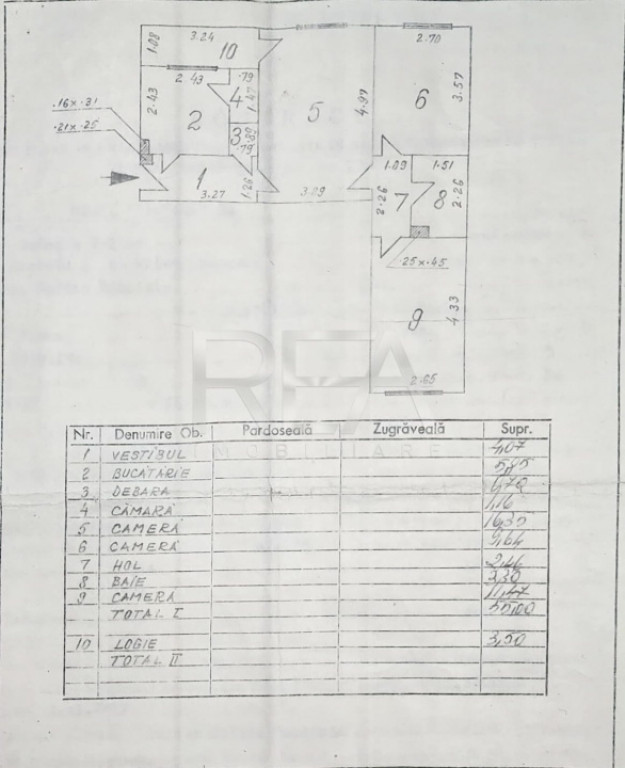 3.24
1.08
10
2.43
.79
4
1.47
2.43
.16 x .31
.21 x .25
2
3
.89
.79
1
3.27
1.26
5
4.97
3.09
2.70
6
3.57
1.09
1.51
2.26
7
8
2.26
.25 x .45
9
4.33
2.65
REA
IMOBILIARE
Nr. Denumire Ob. Pardoseală Zugrăveală Supr.
1 VESTIBUL 4,07
2 BUCATARIE
3 DEBARA
4 CĂMARĂ 1,16
5 CAMERĂ 16,35
6 CAMERĂ 9,64
7 HOL 2,46
8 BAIE 3,30
9 CAMERĂ 11,47
TOTAL I 55,00
10 LOGIE 3,50
TOTAL II